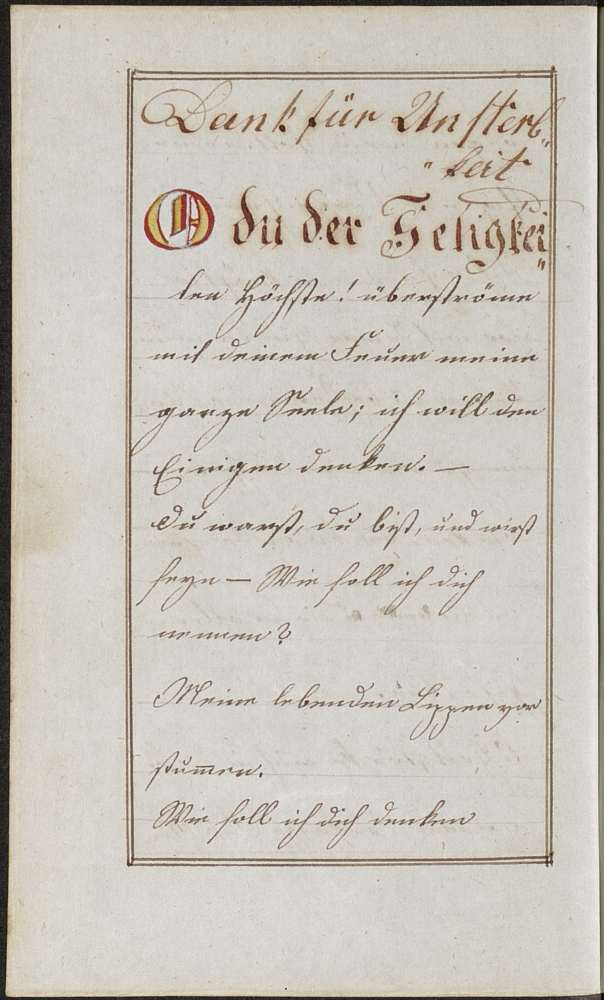 Dank für Unsterb„
„keit
O du der Seligkei„
ten Höchste! überströme
mit deinem Feuer meine
ganze Seele; ich will den
Einigen denken. —
Du warst, du bist, und wirst
seyn — Wie soll ich dich
nennen?
Meine lebenden Lippen ver
stum̅en.
Wie soll ich dich denken